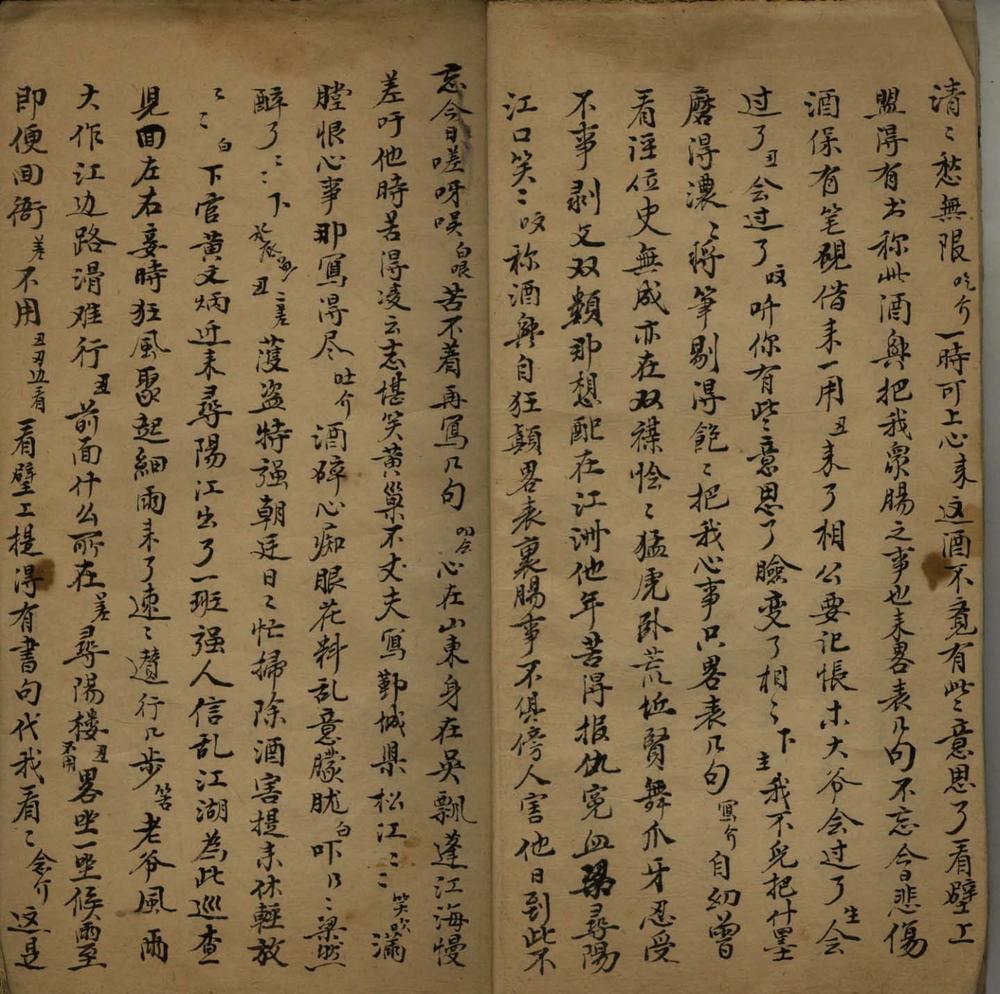 清〻愁無限吃介一時可上心来这酒不竟有些〻意思了看壁上
盟得有出称此酒興把我衆腸之事也来畧表几句不忘今日悲傷
酒保有笔硯借来一用丑来了相公要记帳宋大爷会过了生会
过了丑会过了咬吘你有些〻意思了臉变了相〻下主我不免把什墨
磨得濃〻将筆剔得飽〻把我心事只畧表几句冩介自幻曽
看注位史無成亦在双禖恰〻猛虎卧荒坵賢舞爪牙忍受
不事剥文双頬那想配在江洲他年苦得报仇冤血尋陽
江口笑〻咬称酒興自狂顛畧表裏腸事不俱傍人害他日到此不
忘今日嗟呀唉白哏苦不着再冩几句心在山東身在吳飄蓬江海慢
差吁他時苦得凌云志堪笑黄巢不丈夫冩鄞城県松江〻〻笑介瀟
膛恨心事那冩得尽吐介酒碎心痴眼花料乱意朦胧白吓几〻梁然
醉了〻〻下丑二差萑盗特强朝廷日〻忙掃除酒害提未休輕放
〻〻白下官黄文炳近来尋陽江出了一班强人信乱江湖為此巡查
見囬左右妾時狂風聚起細雨来了速〻趲行几步答老爷風雨
大作江边路滑难行丑前面什么所在差尋陽楼丑畧坐一坐候雨至
即便囬衙差不用丑看看壁工提得有書句代我看〻念介这是